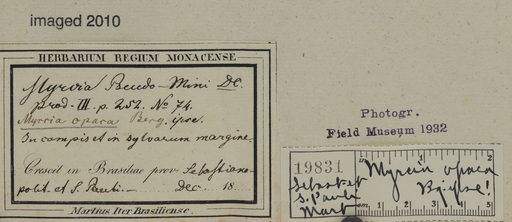 imaged 2010
HERBARIUM REGIUM MONACENSE
Myrcia Pseudo-Mini DC.
prod. III. p. 252. No 74.
Myrcia opaca Berg. ipse.
In campis et in sylvarum margine.
Crescit in Brasiliae prov. Sebastiano-
polit. et S. Pauli. Dec. 18
Martius Iter Brasiliense.
Photogr.
Field Museum 1932
19831
Sebast. et
S. Paulo
Mart
Myrcia opaca
Bg. ipse!
1 2
1 2 3 4 5